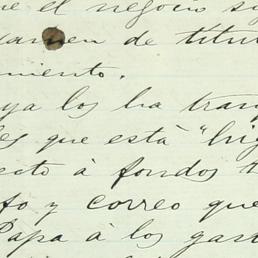 e el negocio su
examen de títu
miento.
ya los ha tran
es que está "hi
ecto á fondos t
fo y correo que
Papa á los gast